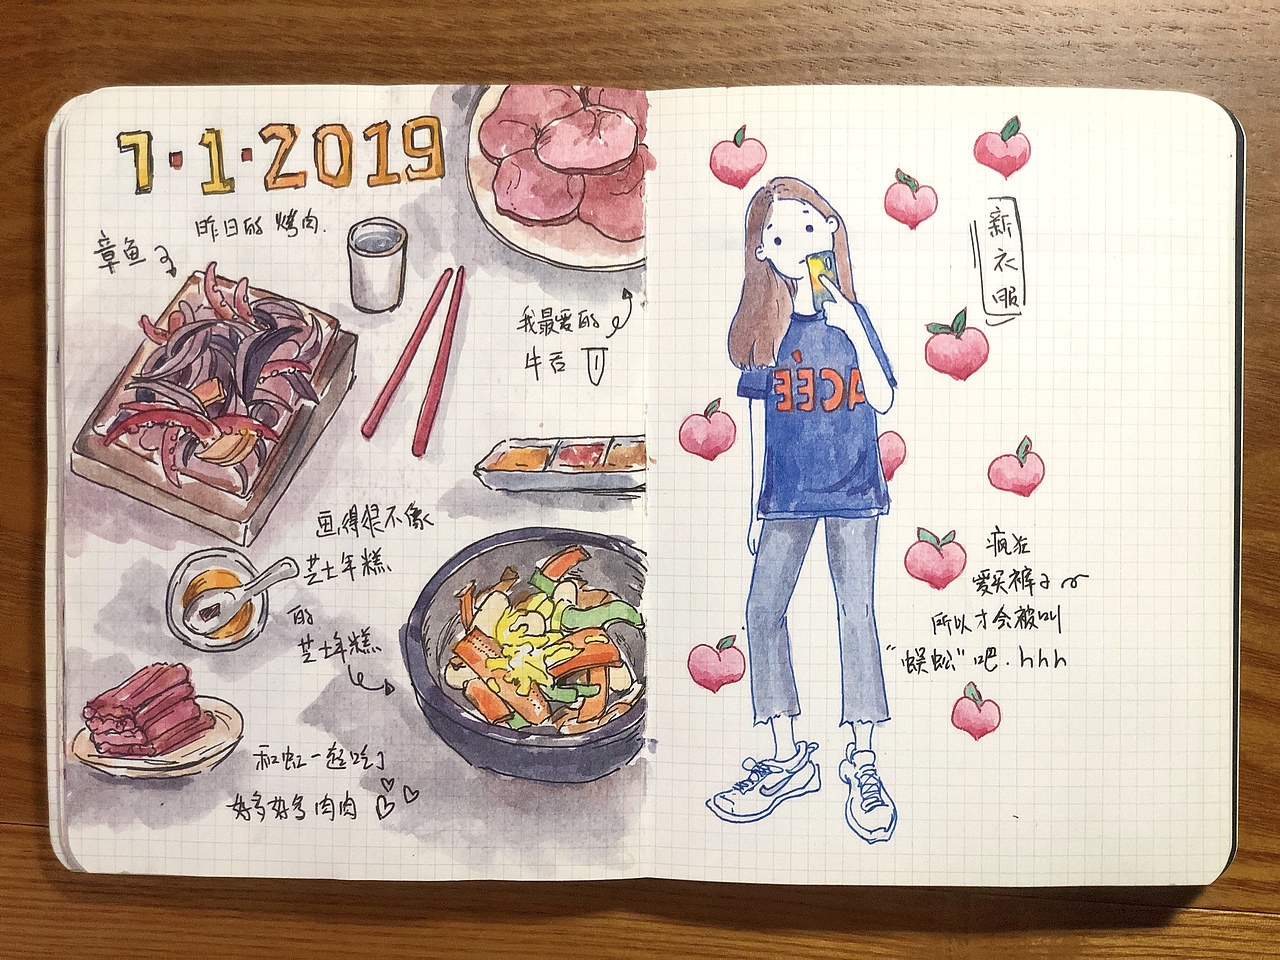 7·1·2019
昨日的烤肉.
章鱼
我最爱的
牛舌
画得很不像
芝士年糕
的
芝士年糕
和虹一起吃了
好多好多肉肉
新衣服
ACÉÉ
疯狂
爱买裤子
所以才会被叫
"蜈蚣"吧.hhh